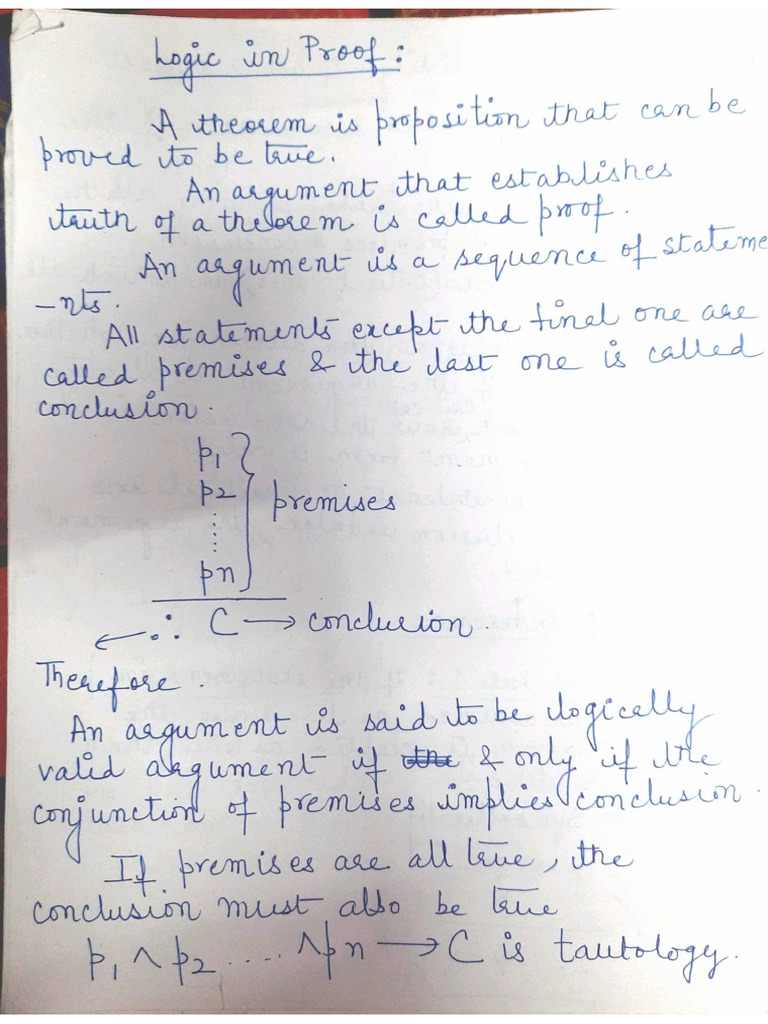 Logic in Proof :
A theorem is proposition that can be
proved to be true.
An argument that establishes
truth of a theorem is called proof.
An argument is a sequence of stateme
-nts.
All statements except the final one are
called premises & the last one is called
conclusion.
p1
p2
premises
pn
∴ C → conclusion.
Therefore.
An argument is said to be logically
valid argument if the & only if the
conjunction of premises implies conclusion.
If premises are all true, the
conclusion must also be true
p1 ∧ p2 .... ∧ pn → C is tautology.